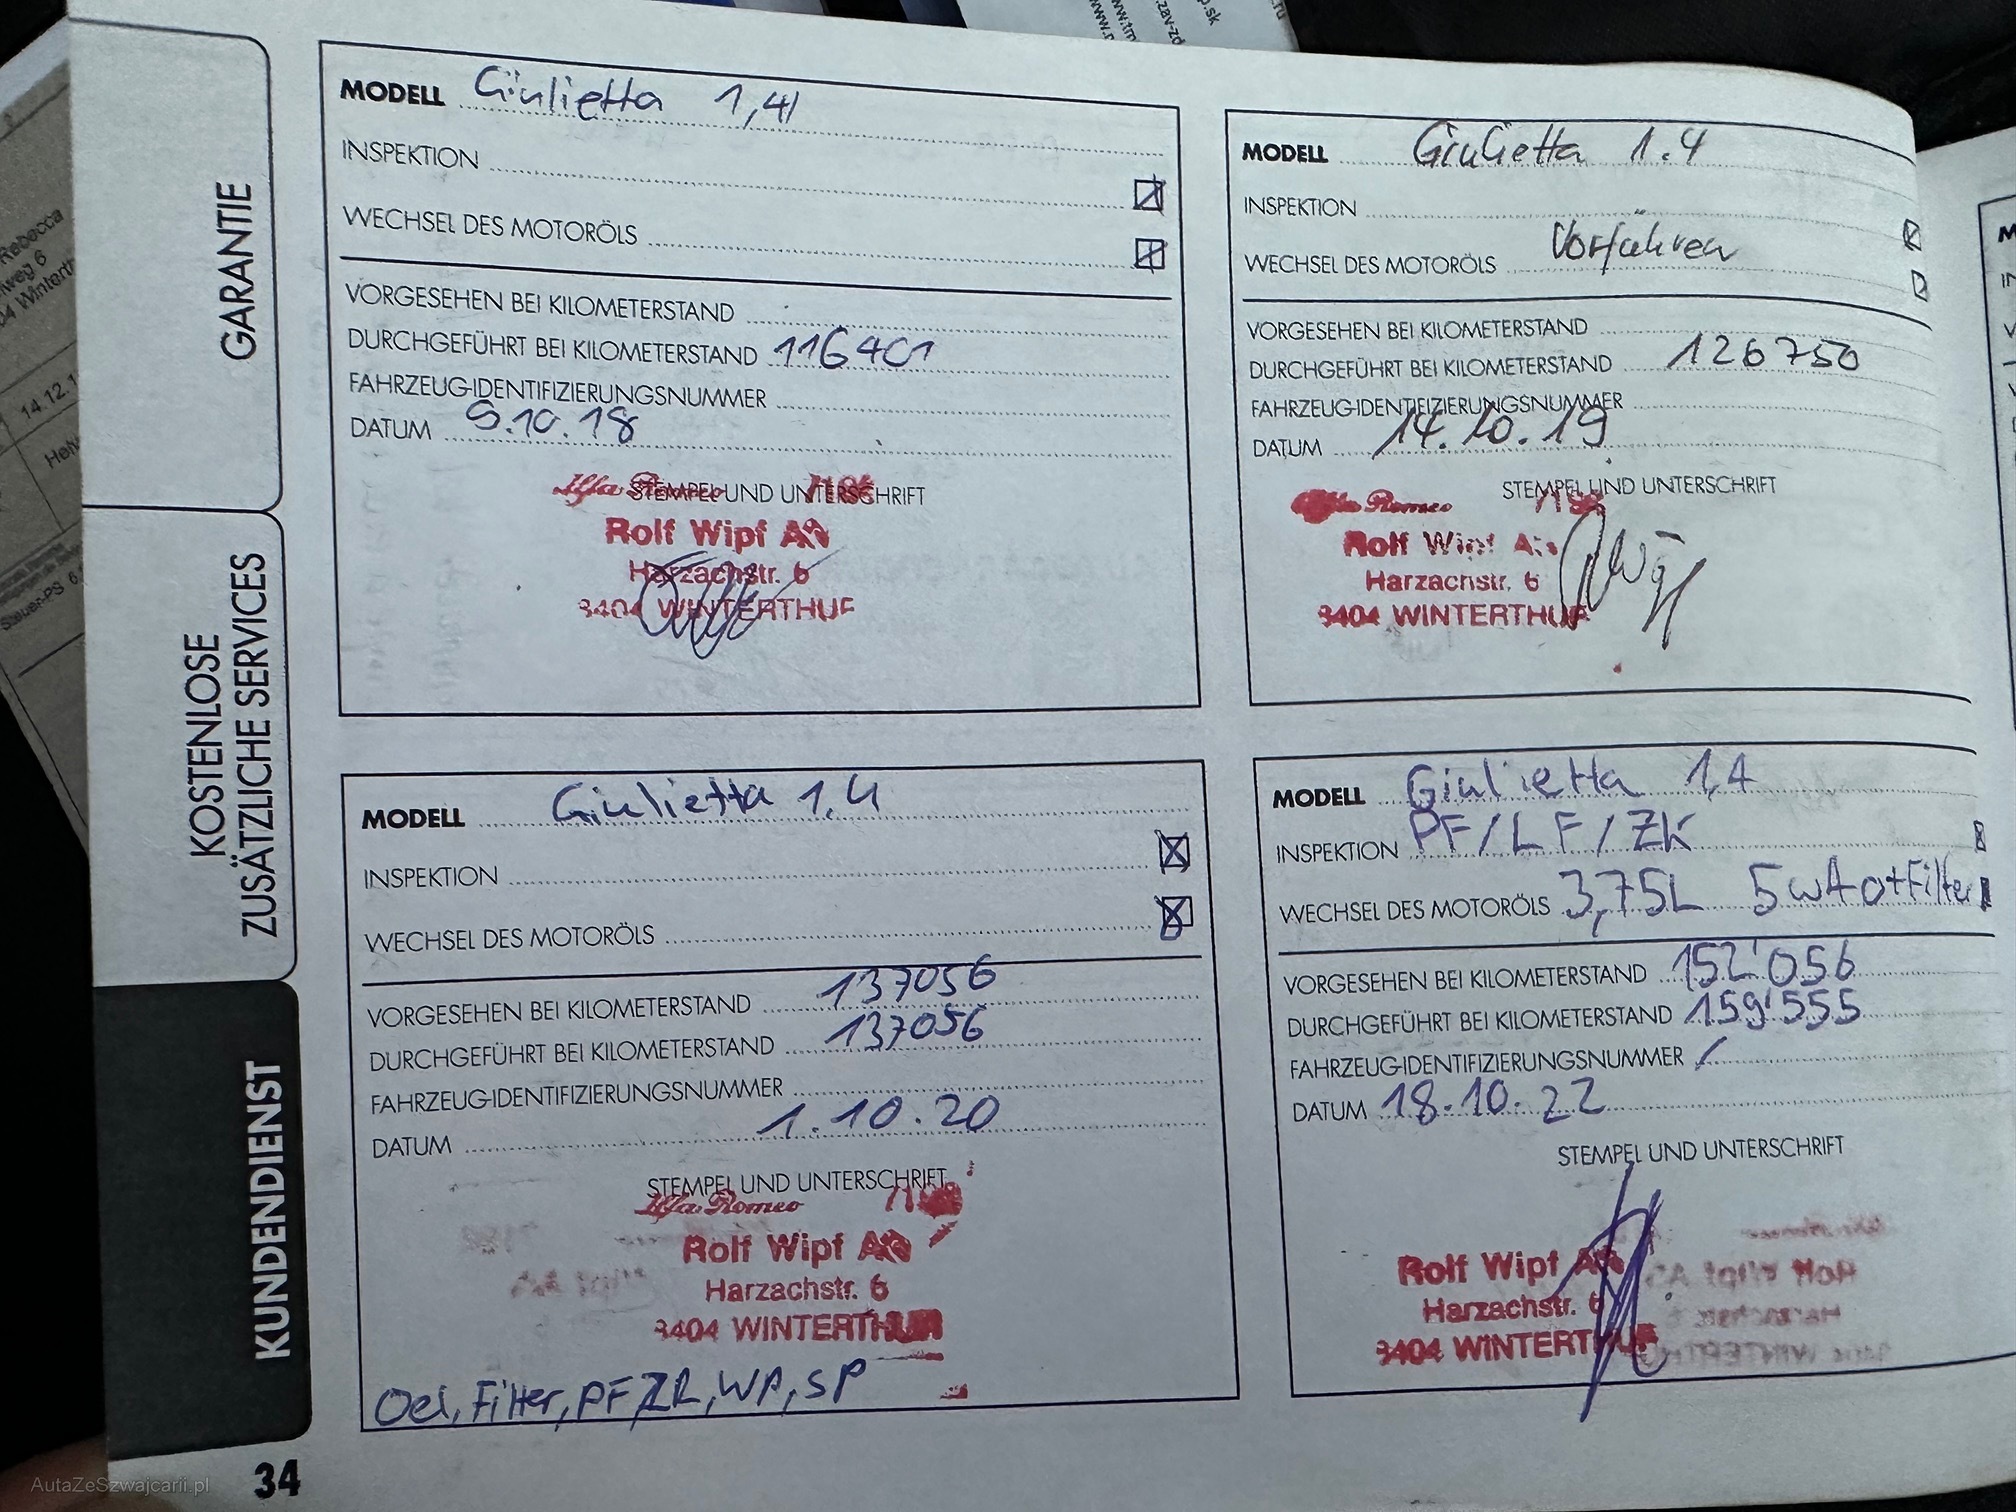 GARANTIE
KOSTENLOSE
ZUSÄTZLICHE SERVICES
KUNDENDIENST
34
MODELL Giulietta 1,4l
INSPEKTION
WECHSEL DES MOTORÖLS
VORGESEHEN BEI KILOMETERSTAND
DURCHGEFÜHRT BEI KILOMETERSTAND 116401
FAHRZEUG-IDENTIFIZIERUNGSNUMMER
DATUM 9.10.18
STEMPEL UND UNTERSCHRIFT
Alfa Romeo
Rolf Wipf AG
Harzachstr. 6
8404 WINTERTHUR
MODELL Giulietta 1.4
INSPEKTION
Vorführen
WECHSEL DES MOTORÖLS
VORGESEHEN BEI KILOMETERSTAND
DURCHGEFÜHRT BEI KILOMETERSTAND 126750
FAHRZEUG-IDENTIFIZIERUNGSNUMMER
DATUM 14.10.19
STEMPEL UND UNTERSCHRIFT
Alfa Romeo
Rolf Wipf AG
Harzachstr. 6
8404 WINTERTHUR
MODELL Giulietta 1.4
INSPEKTION
WECHSEL DES MOTORÖLS
VORGESEHEN BEI KILOMETERSTAND 137056
DURCHGEFÜHRT BEI KILOMETERSTAND 137056
FAHRZEUG-IDENTIFIZIERUNGSNUMMER
DATUM 1.10.20
STEMPEL UND UNTERSCHRIFT
Alfa Romeo
Rolf Wipf AG
Harzachstr. 6
8404 WINTERTHUR
Oel, Filter, PF, ZR, WP, SP
MODELL Giulietta 1,4
INSPEKTION PF/LF/ZK
WECHSEL DES MOTORÖLS 3,75L 5w40+Filter
VORGESEHEN BEI KILOMETERSTAND 152'056
DURCHGEFÜHRT BEI KILOMETERSTAND 159'555
FAHRZEUG-IDENTIFIZIERUNGSNUMMER /
DATUM 18.10.22
STEMPEL UND UNTERSCHRIFT
Rolf Wipf AG
Harzachstr. 6
8404 WINTERTHUR
Rebecca
14.12.1
AutaZeSzwajcarii.pl